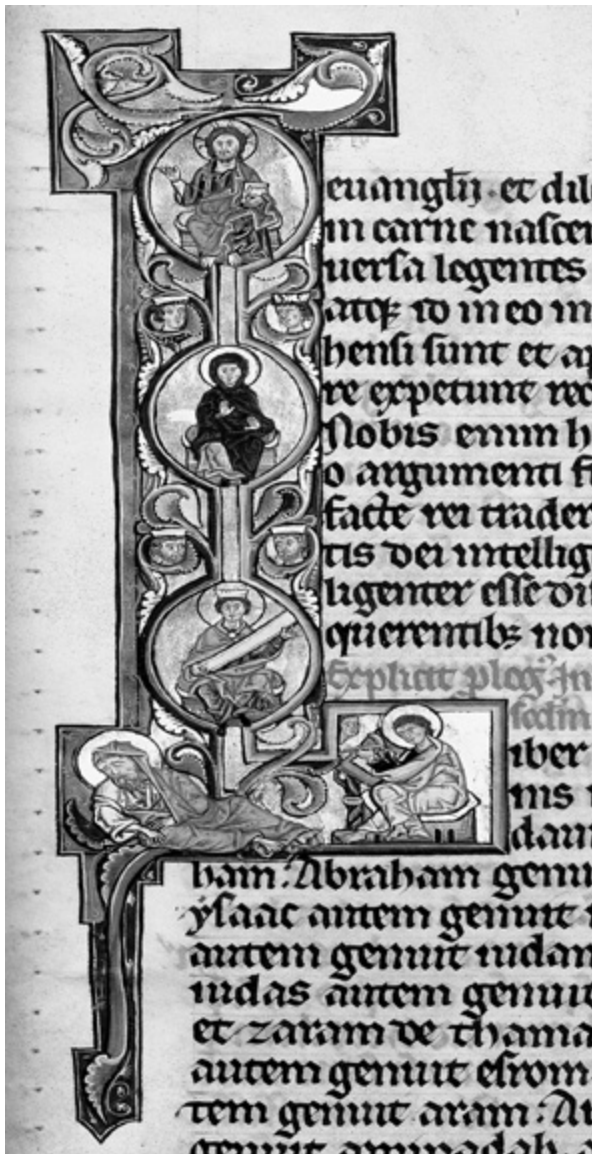 euanglij. et dil
in carne nascen
uersa legentes
atq; id in eo in
hensi sunt et ap
re expetunt rec
Nobis enim h
o argumenti fi
facte rei trader
tis dei intellig
ligenter esse di
querentib; non
Explicit plog; In
iber
ins
daui
ham. Abraham genu
ysaac autem genuit
autem genuit iudam
iudas autem genuit
et zaram de thama
autem genuit esrom
tem genuit aram. Au
genuit aminadab. a